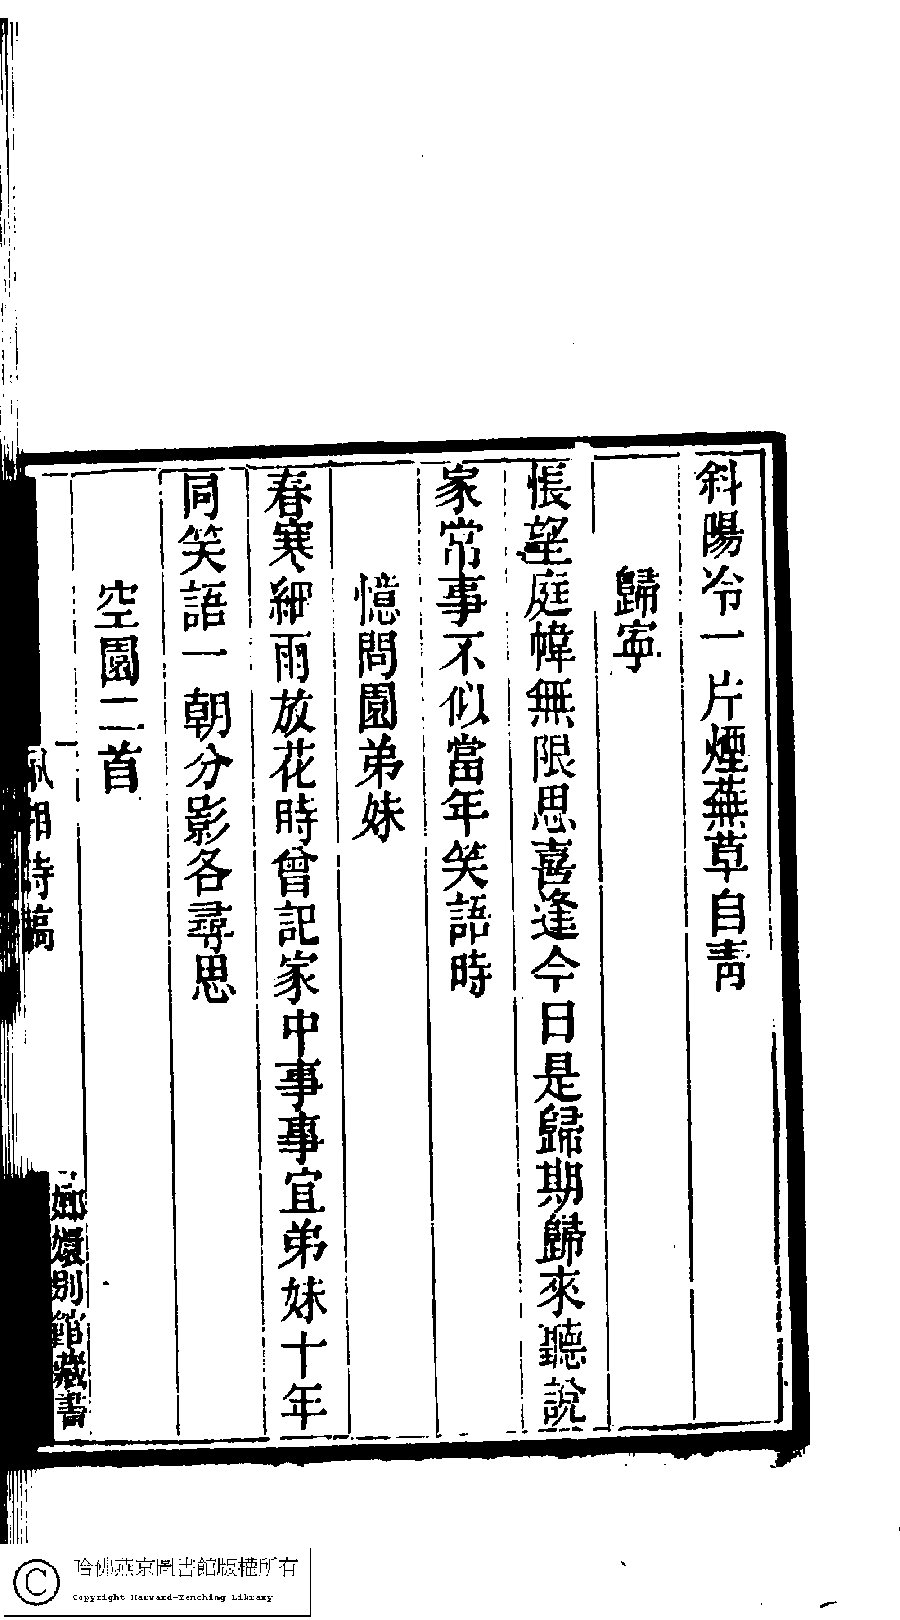 斜陽冷一片煙蕪草自靑
歸寧
悵望庭幃無限思喜逢今日是歸期歸來聽說
家常事不似當年笑語時
憶問園弟妹
春寒細雨放花時曾記家中事事宜弟妹十年
同笑語一朝分影各尋思
空園二首
湘詩稿
嫏嬛別館藏書
哈佛燕京圖書館版權所有
Copyright Harvard-Yenching Library